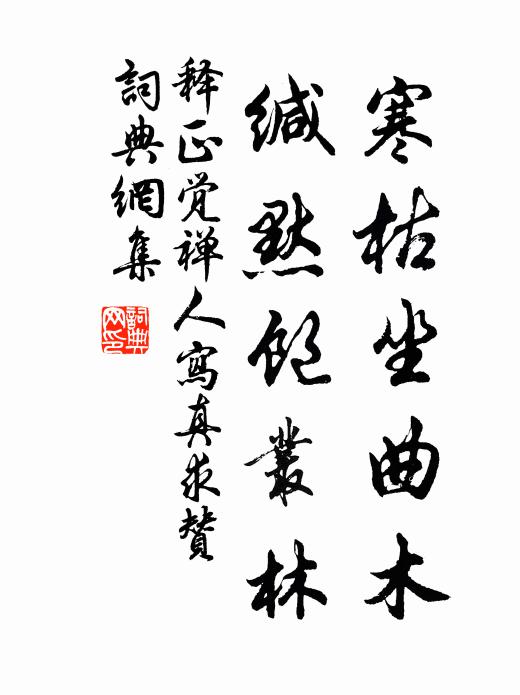 寒枯坐曲木
缄默飽叢林
释正觉禅人寫真求贊
詞典網集
詞典网印